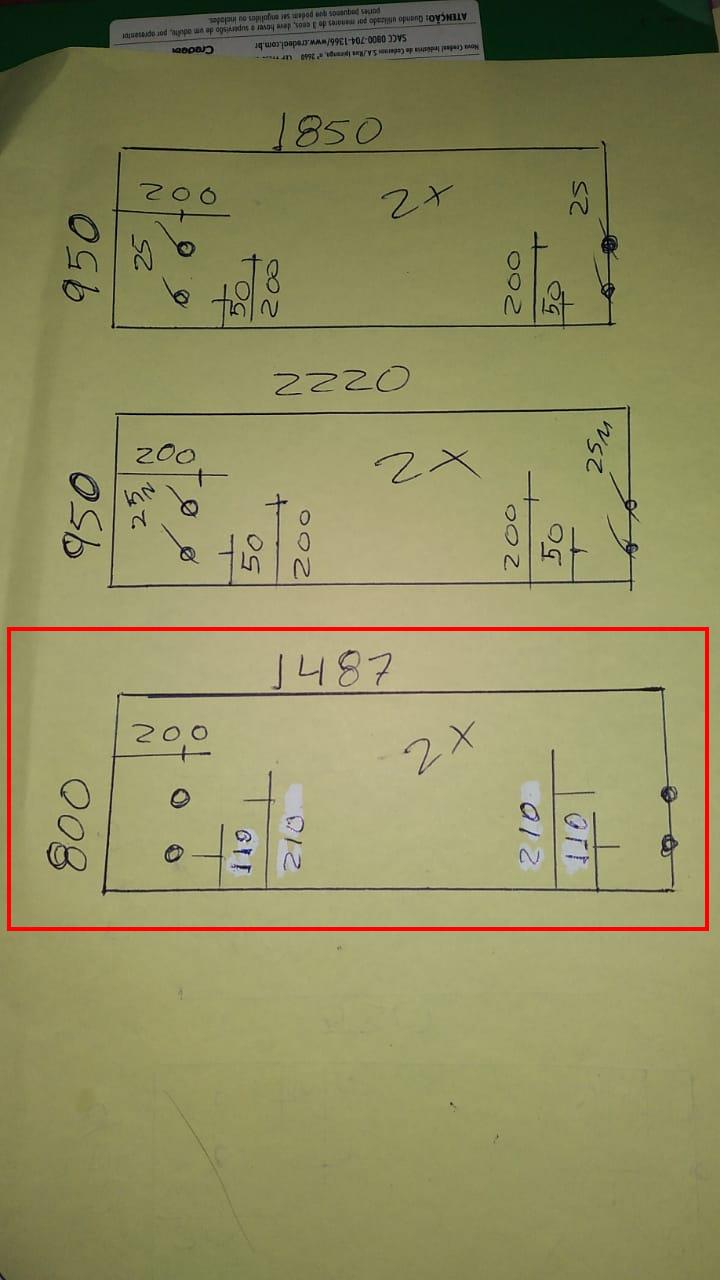 ATENÇÃO: Quando utilizado por menores de 3 anos, deve haver a supervisão de um adulto, por apresentar
partes pequenas que podem ser engolidas ou inaladas.
SACC 0800-704-1366/www.credeal.com.br
Nova Credeal Indústria de Cadernos S.A./Rua Ipiranga, nº 3660
Credeal
1850
200
2X
25
950
25
50
200
200
50
2220
200
2X
25
950
25
50
200
200
50
1487
200
2X
800
110
210
210
110